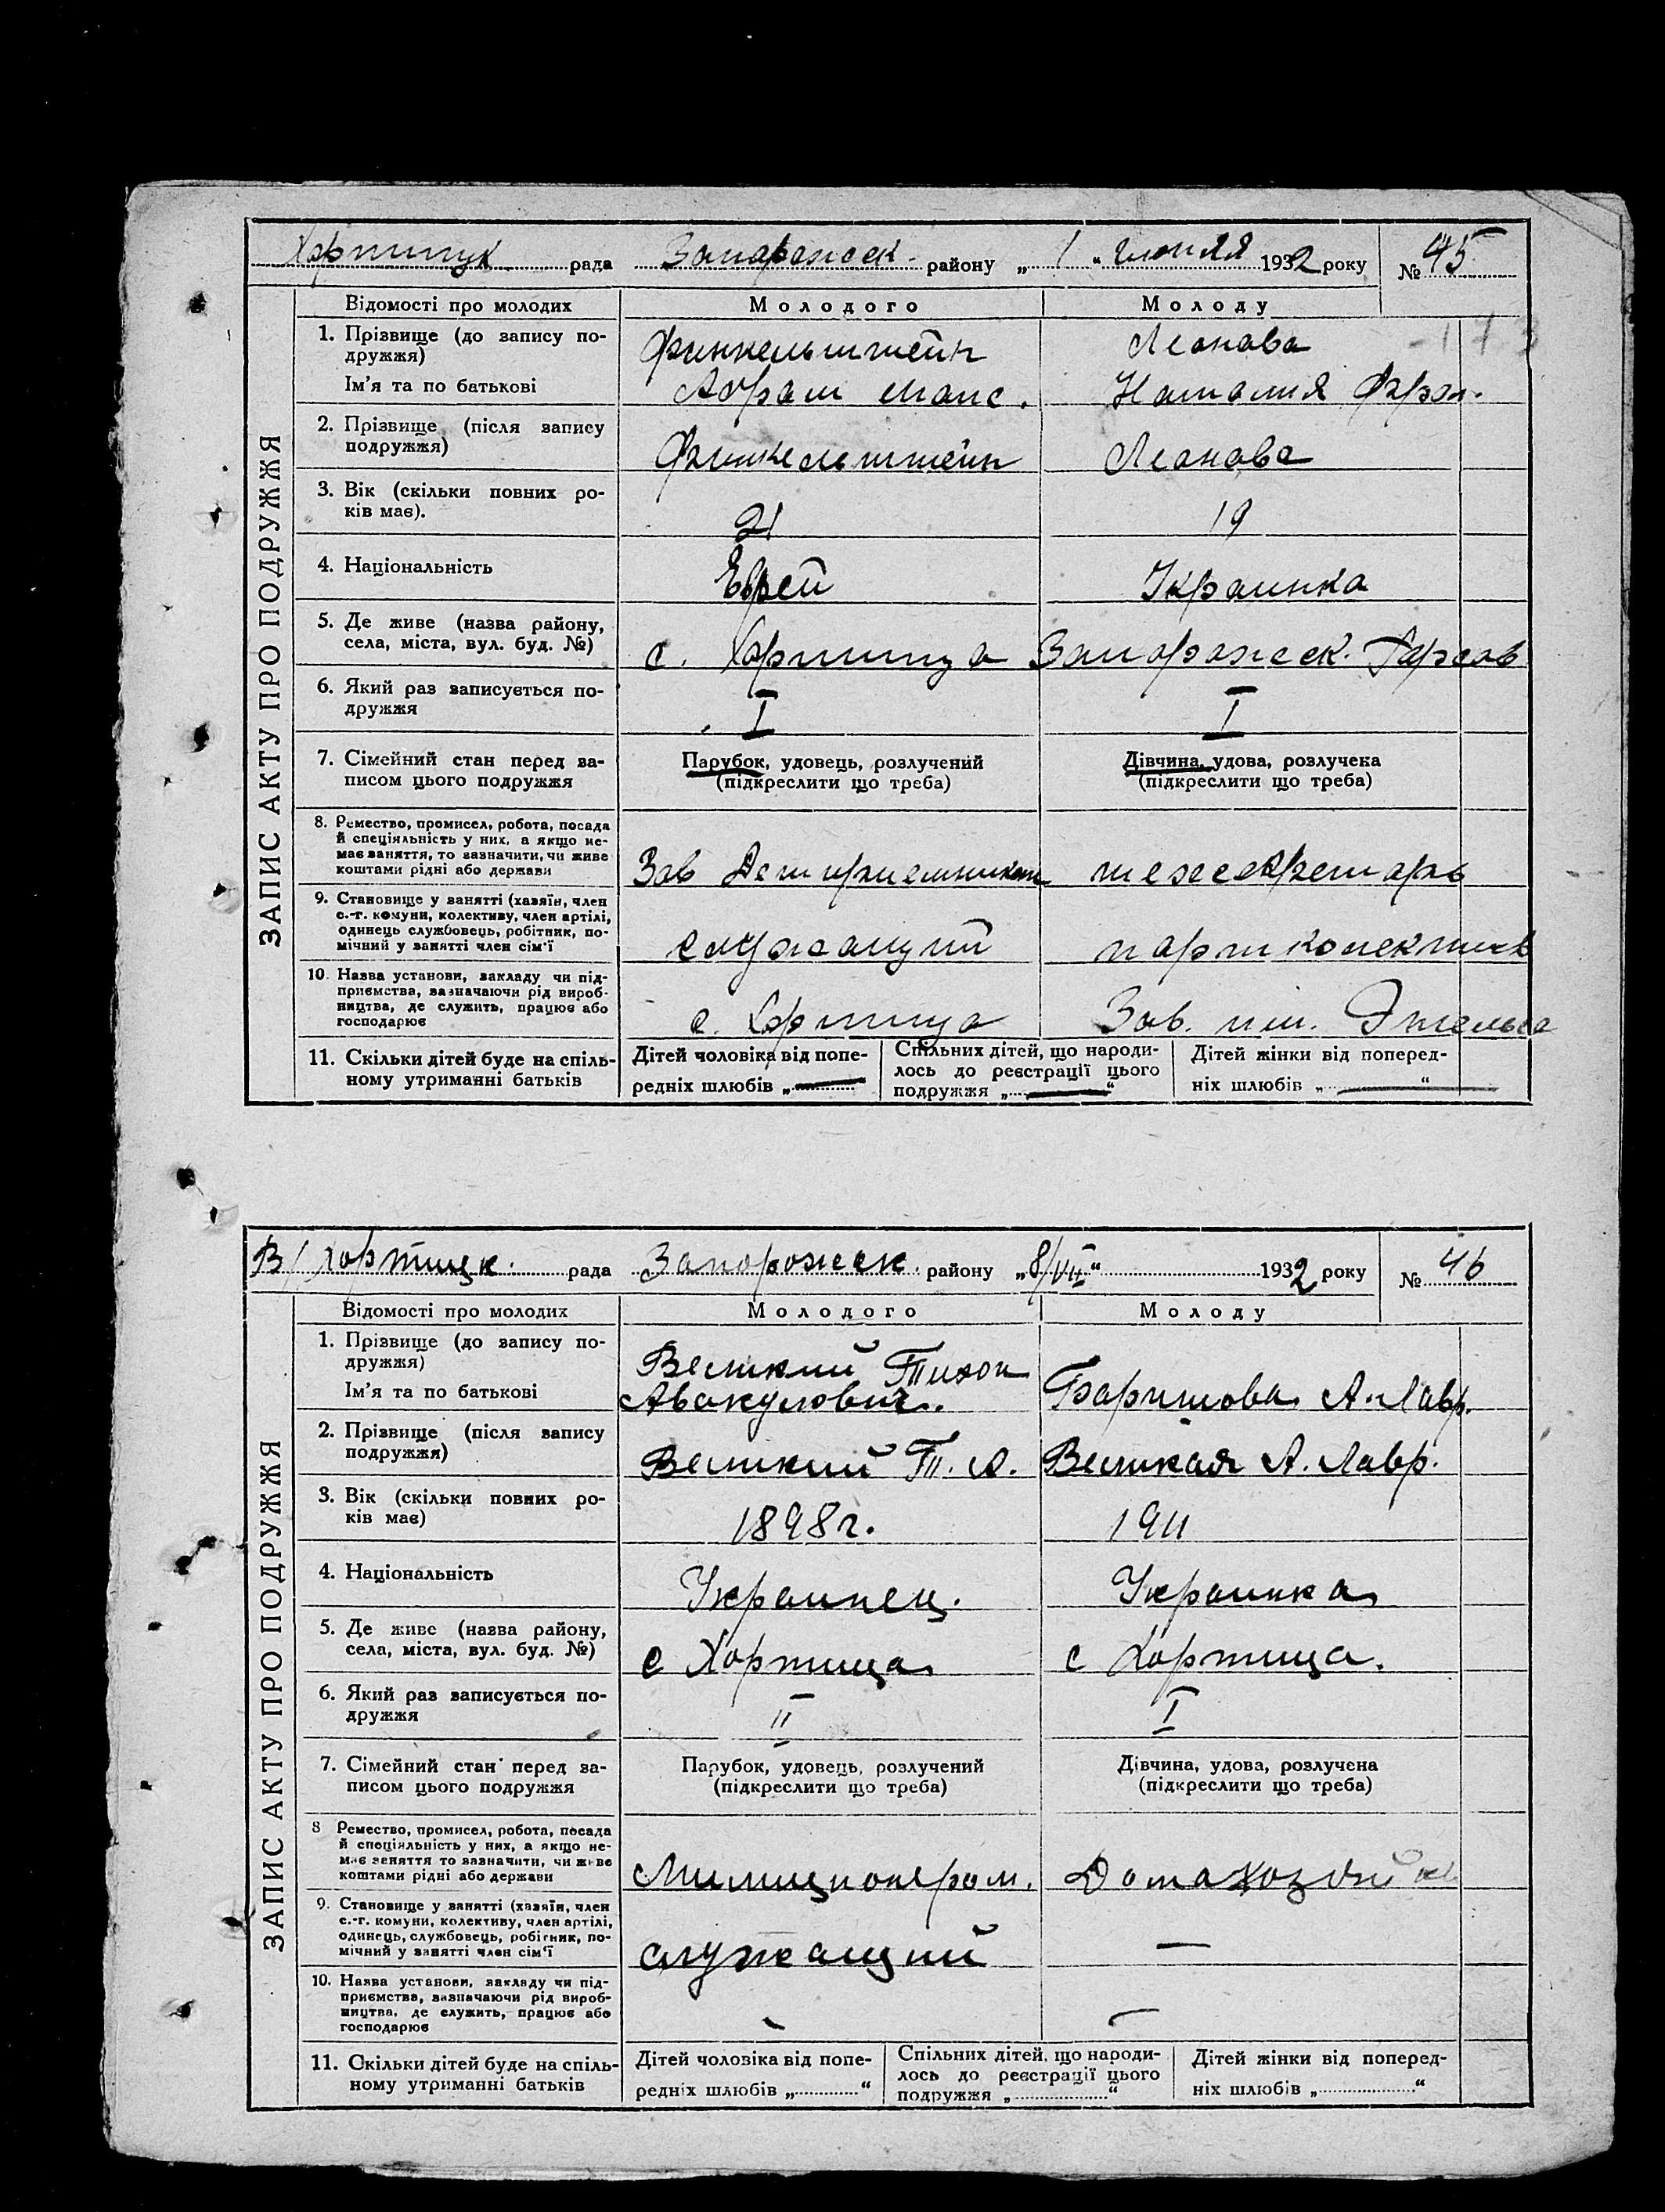 Хортицк рада Запорожск. району „ 1 “ июля 1932 року № 45
ЗАПИС АКТУ ПРО ПОДРУЖЖЯ
Відомості про молодих Молодого Молоду
1. Прізвище (до запису по-
дружжя) Финкельштейн Леонова
Ім'я та по батькові Абрам Наталия
2. Прізвище (після запису
подружжя) Финкельштейн Леонова
3. Вік (скільки повних ро-
ків має). 21 19
4. Національність Еврей Украинка
5. Де живе (назва району,
села, міста, вул. буд. №) с. Хортица Запорожск. Горсов
6. Який раз записується по-
дружжя I I
7. Сімейний стан перед за- Парубок, удовець, розлучений Дівчина, удова, розлучена
писом цього подружжя (підкреслити що треба) (підкреслити що треба)
8. Ремество, промисел, робота, посада
й спеціяльність у них, а якщо не-
має заняття, то зазначити, чи живе
коштами рідні або держави Зав Детприемником техсекретарь
9. Становище у занятті (хазяїн, член
с.-г. комуни, колективу, член артілі,
одинець службовець, робітник, по-
мічний у занятті член сім'ї служащий парт колектив
10. Назва установи, закладу чи під-
приємства, зазначаючи рід вироб-
ництва, де служить, працює або
господарює с. Хортица Зав. им. Энгельса
11. Скільки дітей буде на спіль-
ному утриманні батьків
Дітей чоловіка від попе-
редніх шлюбів „ — “
Спільних дітей, що народи-
лось до реєстрації цього
подружжя „ — “
Дітей жінки від поперед-
ніх шлюбів „ — “
В/Хортицк. рада Запорожск. району „8/VII“ 1932 року № 46
ЗАПИС АКТУ ПРО ПОДРУЖЖЯ
Відомості про молодих Молодого Молоду
1. Прізвище (до запису по-
дружжя) Великий Тихон
Ім'я та по батькові Авакумович. А. Лавр.
2. Прізвище (після запису
подружжя) Великий Т. А. Великая А. Лавр.
3. Вік (скільки повних ро-
ків має) 1898г. 1911
4. Національність Украинец. Украинка
5. Де живе (назва району,
села, міста, вул. буд. №) с Хортица с Хортица.
6. Який раз записується по-
дружжя II I
7. Сімейний стан перед за- Парубок, удовець, розлучений Дівчина, удова, розлучена
писом цього подружжя (підкреслити що треба) (підкреслити що треба)
8 Ремество, промисел, робота, посада
й спеціяльність у них, а якщо не-
має заняття то зазначити, чи живе
коштами рідні або держави Милиционером. Домахозяйка
9. Становище у занятті (хазяїн, член
с.-г. комуни, колективу, член артілі,
одинець, службовець, робітник, по-
мічний у занятті член сім'ї служащий —
10. Назва установи, закладу чи під-
приємства, зазначаючи рід вироб-
ництва, де служить, працює або
господарює - —
11. Скільки дітей буде на спіль-
ному утриманні батьків
Дітей чоловіка від попе-
редніх шлюбів „ “
Спільних дітей, що народи-
лось до реєстрації цього
подружжя „ “
Дітей жінки від поперед-
ніх шлюбів „ “